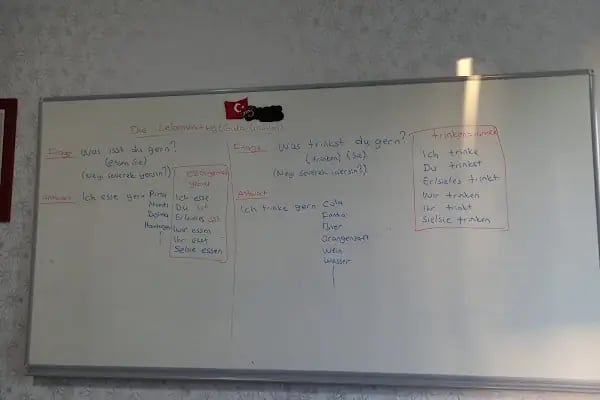 Die Lebensmittel
Frage Was isst du gern?
(essen Sie)
(Neyi severek yersin?)
Antwort Ich esse gern Pizza
Manti
Döner
Hamburger
essen=yemek
Ich esse
Du isst
Er/sie/es isst
Wir essen
Ihr esst
Sie/sie essen
Frage Was trinkst du gern?
(trinken) (Sie)
(Neyi severek içersin?)
Antwort
Ich trinke gern Cola
Fanta
Orangensaft
Wein
Wasser
trinken=içmek
Ich trinke
Du trinkst
Er/sie/es trinkt
Wir trinken
Ihr trinkt
Sie/sie trinken